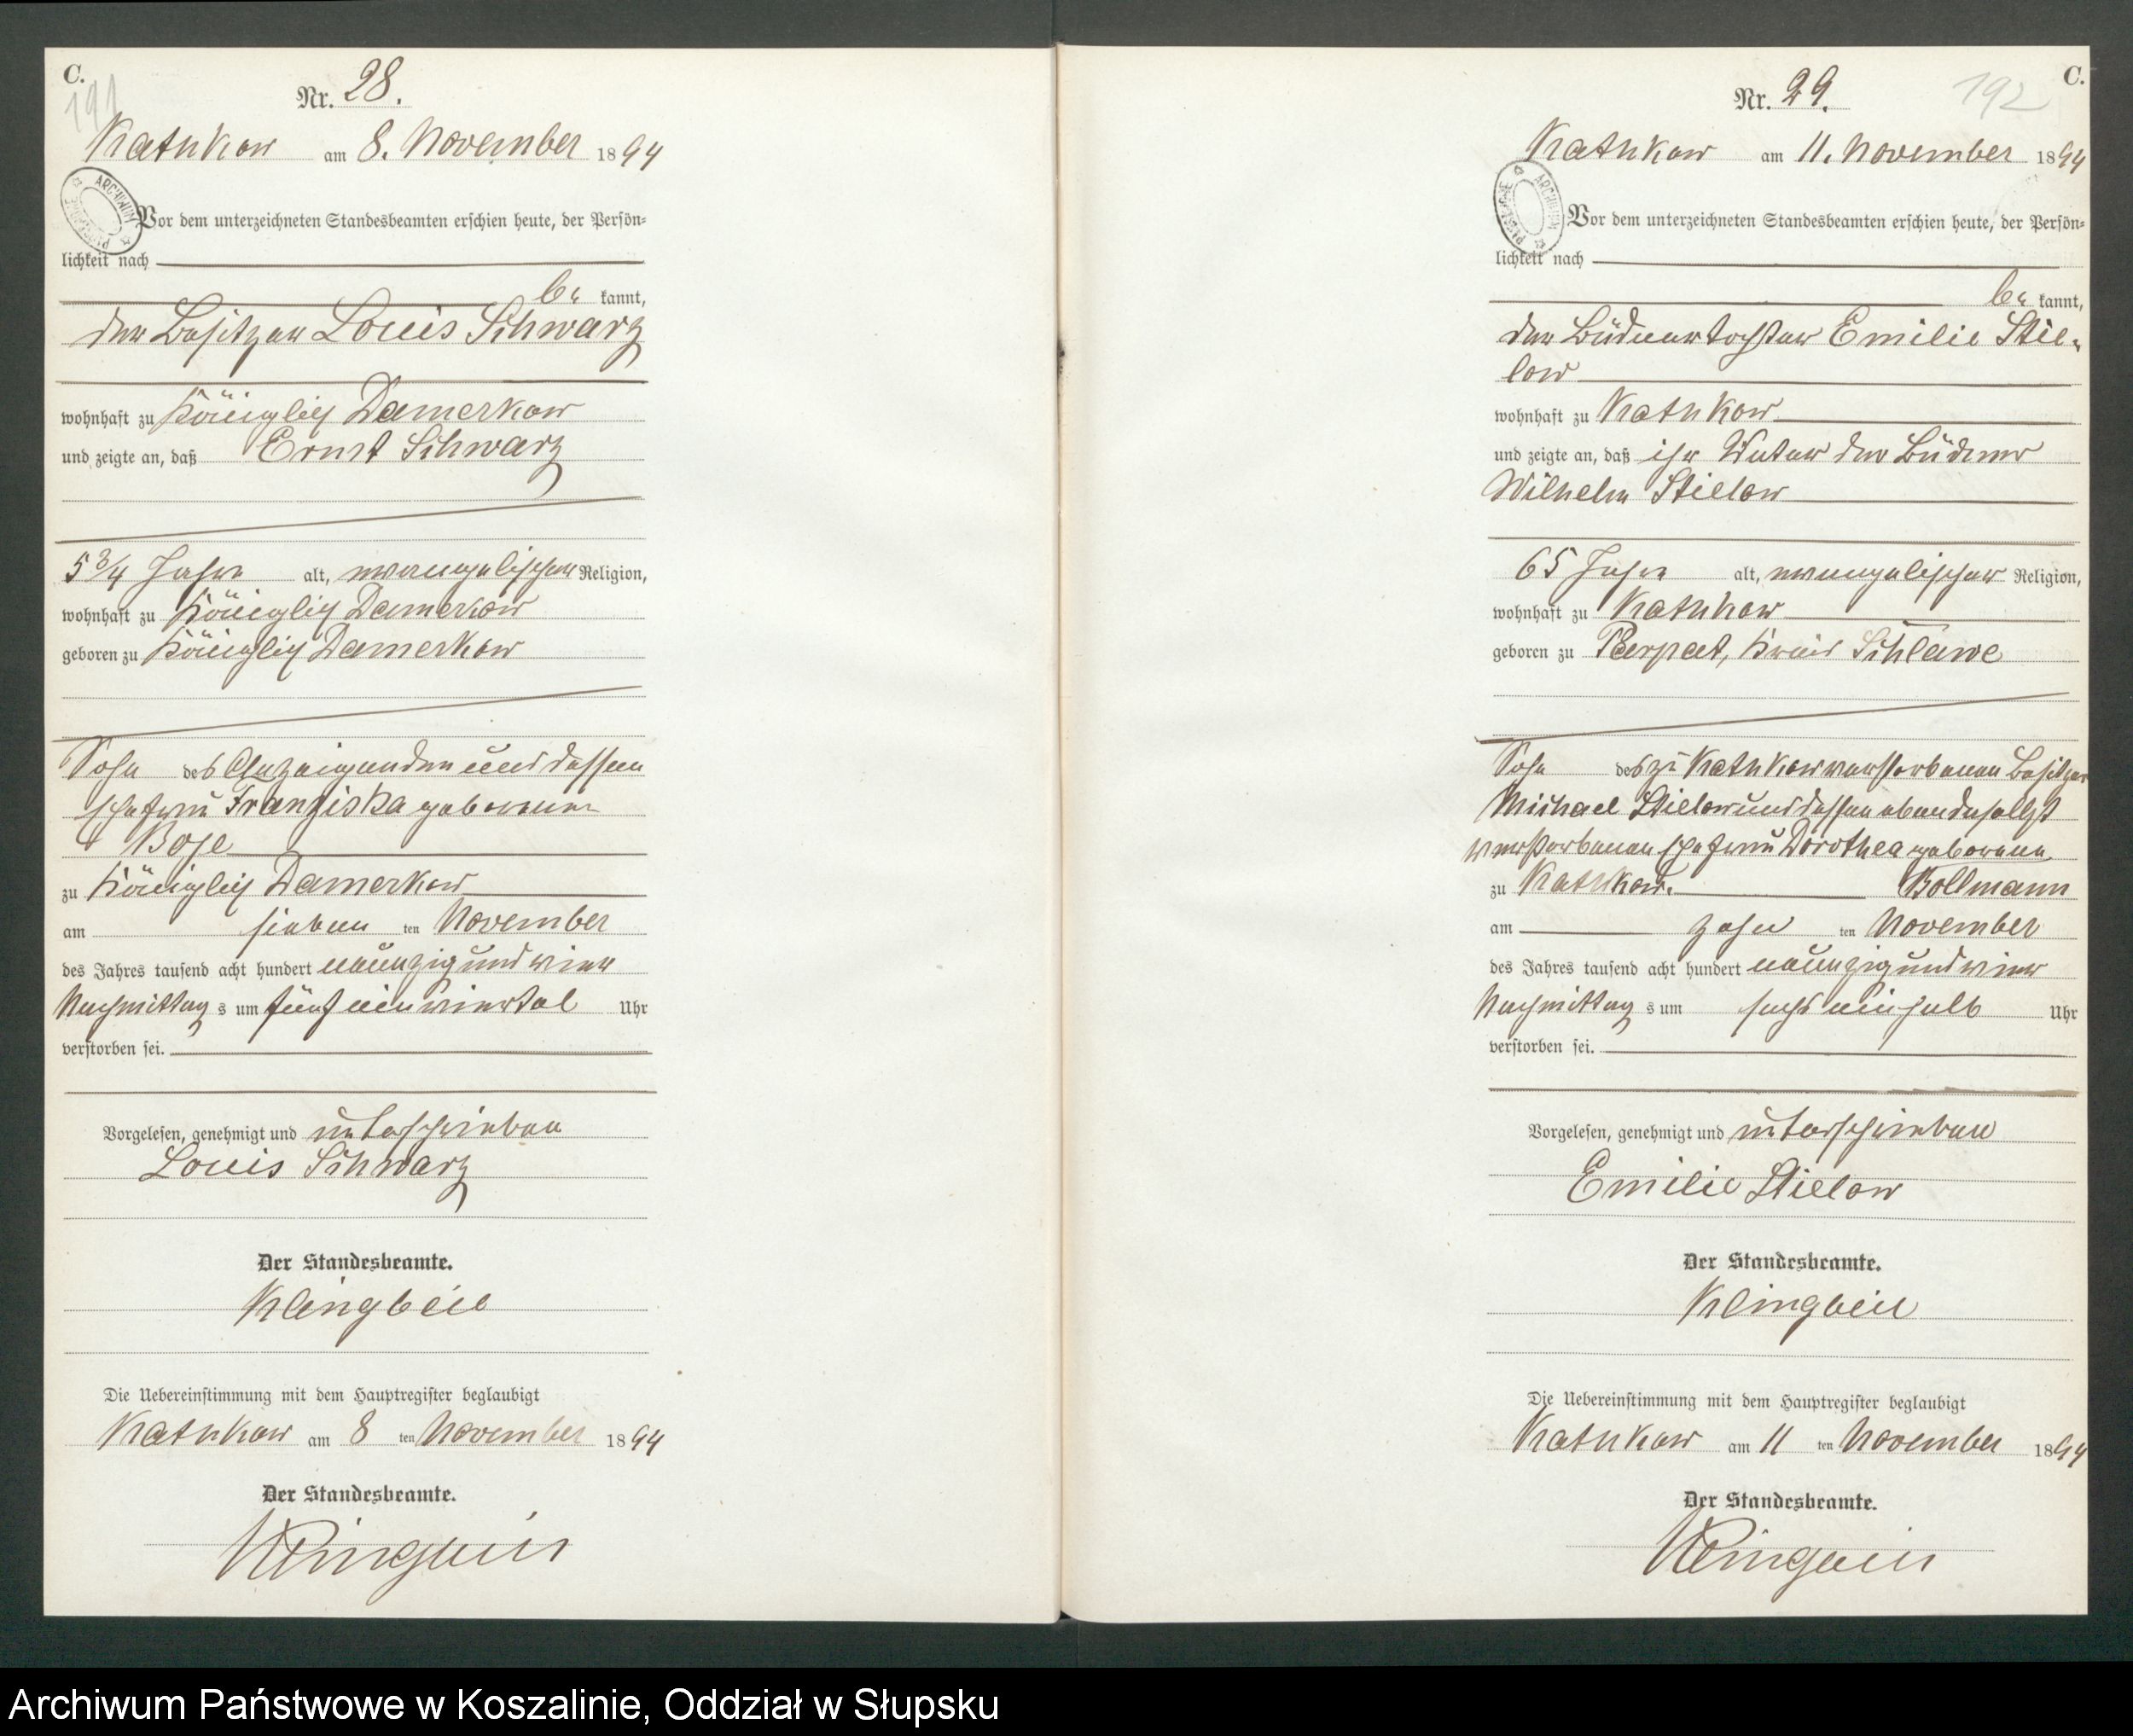 C.
191
Nr. 28.
Kathkow am 8. November 1894
ARCHIWUM PAŃSTWOWE
Vor dem unterzeichneten Standesbeamten erschien heute, der Persön-
lichkeit nach
be kannt,
der Besitzer Louis Schwarz
wohnhaft zu Königlich Damerkow
und zeigte an, daß Ernst Schwarz
5 3/4 Jahre alt, evangelischer Religion,
wohnhaft zu Königlich Damerkow
geboren zu Königlich Damerkow
Sohn des Anzeigenden und dessen
Ehefrau Franziska geborenen
Boje
zu Königlich Damerkow
am sieben ten November
des Jahres tausend acht hundert neunzig und vier
Nachmittag s um fünf ein viertel Uhr
verstorben sei.
Vorgelesen, genehmigt und unterschrieben
Louis Schwarz
Der Standesbeamte.
Klingbeil
Die Uebereinstimmung mit dem Hauptregister beglaubigt
Kathkow am 8 ten November 1894
Der Standesbeamte.
Klingbeil
C.
192
Nr. 29.
Kathkow am 11. November 1894
ARCHIWUM PAŃSTWOWE
Vor dem unterzeichneten Standesbeamten erschien heute, der Persön-
lichkeit nach
be kannt,
der Büdnertochter Emilie Stie-
low
wohnhaft zu Kathkow
und zeigte an, daß ihr Vater der Büdner
Wilhelm Stielow
65 Jahre alt, evangelischer Religion,
wohnhaft zu Kathkow
geboren zu Parpart, Kreis Schlawe
Sohn des zu Kathkow verstorbenen Besitzer
Michael Stielow und dessen ebendaselbst
verstorbenen Ehefrau Dorothea geborenen
zu Kathkow. Bollmann
am zehn ten November
des Jahres tausend acht hundert neunzig und vier
Nachmittag s um sechs ein halb Uhr
verstorben sei.
Vorgelesen, genehmigt und unterschrieben
Emilie Stielow
Der Standesbeamte.
Klingbeil
Die Uebereinstimmung mit dem Hauptregister beglaubigt
Kathkow am 11 ten November 1894
Der Standesbeamte.
Klingbeil
Archiwum Państwowe w Koszalinie, Oddział w Słupsku